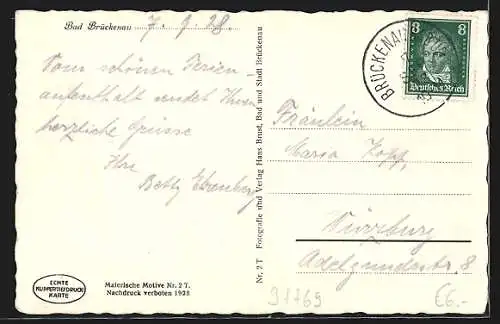 Bad Brückenau 7. 9. 28.
Vom schönen Ferien-
aufenthalt sendet Ihnen
herzliche Grüsse
Ihre
Betty
ECHTE
KUPFERTIEFDRUCK
KARTE
Malerische Motive Nr. 2 T.
Nachdruck verboten 1928
Nr. 2 T Fotografie und Verlag Hans Brust, Bad und Stadt Brückenau
BRÜCKENAU
8 8
Deutsches Reich
Fräulein
Maria Kopp,
Würzburg
Adelgundestr. 8
91769
€6.-